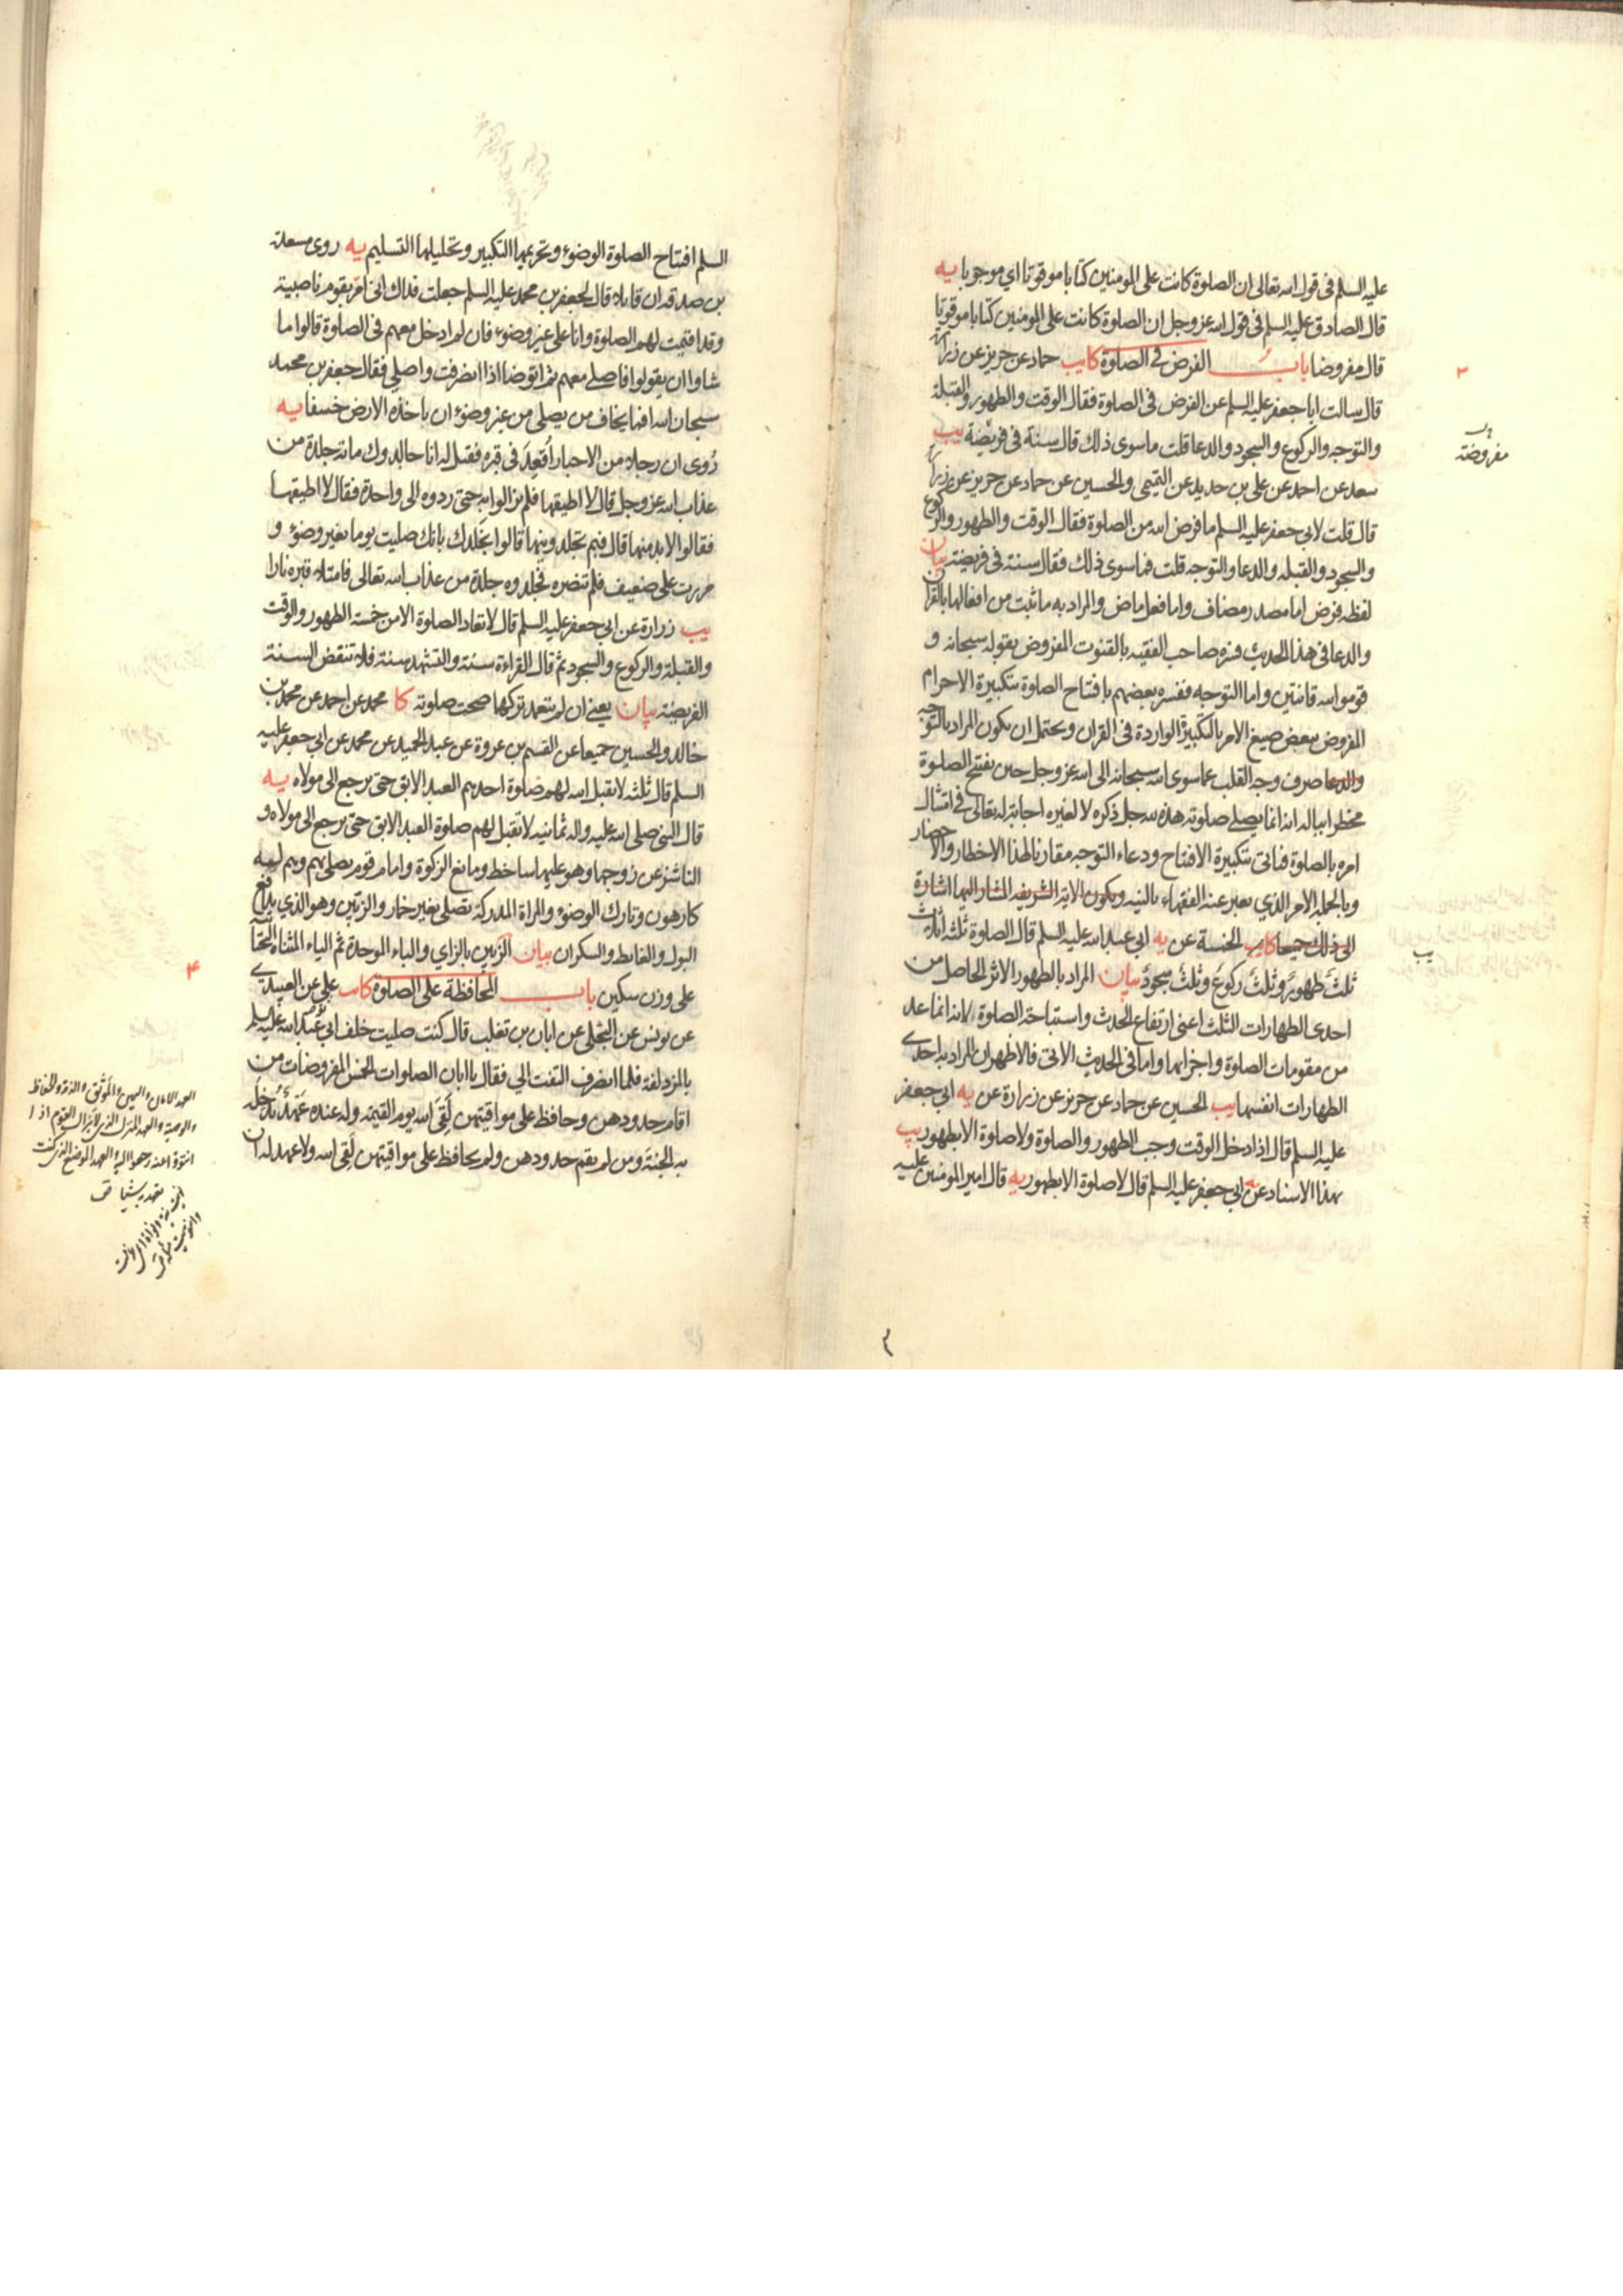 عليه السلم فى قول الله تعالى ان الصلوة كانت على المومنين كتابا موقوتا اي موجوبا يه
قال الصادق عليه السلم فى قول الله عز وجل ان الصلوة كانت على المومنين كتابا موقوتا
قال مفروضا باب الفرض فى الصلوة كايب حماد عن حريز عن زرارة
قال سالت ابا جعفر عليه السلم عن الفرض فى الصلوة فقال الوقت والطهور والقبلة
والتوجه والركوع والسجود والدعا قلت ما سوى ذلك قال سنة فى فريضة يب
سعد عن احمد عن على بن حديد عن التميمى والحسين عن حماد عن حريز عن زرارة
قال قلت لابى جعفر عليه السلم ما فرض الله من الصلوة فقال الوقت والطهور والركوع
والسجود والقبلة والدعا والتوجه قلت فما سوى ذلك فقال سنة فى فريضة بيان
لفظه فرض اما مصدر مضاف واما فعل ماض والمراد به ما ثبت من افعالها بالقران
والدعا فى هذا الحديث فسره صاحب الفقيه بالقنوت المفروض بقوله سبحانه و
قوموا لله قانتين واما التوجه ففسره بعضهم بافتتاح الصلوة بتكبيرة الاحرام
المفروض ببعض صيغ الامر بالتكبيرة الواردة فى القران ويحتمل ان يكون المراد بالتوجه
والدعا صرف وجه القلب عما سوى الله سبحانه الى الله عز وجل حين يفتتح الصلوة
مخطرا بباله انه انما يصلى صلوته هذه لله جل ذكره لا لغيره اجابة له تعالى فى امتثال
امره بالصلوة فياتى بتكبيرة الافتتاح ودعاء التوجه مقارنا لهذا الاخطار والاحضار
وبالجملة الامر الذي يعبر عنه الفقهاء بالنيه ويكون الاية الشريفه المشار اليها اشارة
الى ذلك جميعا كايب الخمسة عن يه ابى عبد الله عليه السلم قال الصلوة ثلثة اثلاث
ثلث طهور وثلث ركوع وثلث سجود بيان المراد بالطهور الاثر الحاصل من
احدى الطهارات الثلث اعنى ارتفاع الحدث واستباحة الصلوة لانه انما عد
من مقومات الصلوة واجزائها واما فى الحديث الاتى فالاظهر ان المراد به احدى
الطهارات انفسها يب الحسين عن حماد عن حريز عن زرارة عن يه ابى جعفر
عليه السلم قال اذا دخل الوقت وجب الطهور والصلوة ولا صلوة الا بطهور يب
بهذا الاسناد عن ابى جعفر عليه السلم قال لا صلوة الا بطهور يه قال امير المومنين عليه
٢
مفروضة
يب
٣
السلم افتتاح الصلوة الوضوء وتحريمها التكبير وتحليلها التسليم يه روى مسعدة
بن صدقة ان قايلا قال لجعفر بن محمد عليه السلم جعلت فداك انى امر بقوم ناصبية
وقد اقيمت لهم الصلوة وانا على غير وضوء فان لم ادخل معهم فى الصلوة قالوا ما
شاوا ان يقولوا فاصلى معهم ثم اتوضا اذا انصرفت واصلى فقال جعفر بن محمد
سبحان الله افما يخاف من يصلى من غير وضوء ان ياخذه الارض خسفا يه
رُوى ان رجلا من الاحبار اُقعد فى قبره فقيل له انا جالدوك مائة جلدة من
عذاب الله عز وجل قال لا اطيقها فلم يزالوا به حتى ردوه الى واحدة فقال لا اطيقها
فقالوا لا بد منها قال فيم تجلدونيها قالوا نجلدك بانك صليت يوما بغير وضوء و
مررت على ضعيف فلم تنصره فجلدوه جلدة من عذاب الله تعالى فامتلا قبره نارا
يب زرارة عن ابى جعفر عليه السلم قال لا تعاد الصلوة الا من خمسة الطهور والوقت
والقبلة والركوع والسجود ثم قال القراءة سنة والتشهد سنة فلا تنقض السنة
الفريضة بيان يعنى ان لم يتعمد تركها صحت صلوته كا محمد عن احمد عن محمد بن
خالد والحسين جميعا عن القسم بن عروة عن عبد الحميد عن محمد عن ابى جعفر عليه
السلم قال ثلثة لا تقبل الله لهم صلوة احدهم العبد الابق حتى يرجع الى مولاه يه
قال النبى صلى الله عليه واله ثمانية لا تقبل لهم صلوة العبد الابق حتى يرجع الى مولاه و
الناشز عن زوجها وهو عليها ساخط ومانع الزكوة وامام قوم يصلى بهم وهم له
كارهون وتارك الوضوء والمراة المدركة تصلى بغير خمار والزبين وهو الذي يدافع
البول والغايط والسكران بيان الزبين بالزاي والباء الموحدة ثم الياء المثناة التحتانية
على وزن سكين باب المحافظة على الصلوة كايب على عن العبيدي
عن يونس عن البجلى عن ابان بن تغلب قال كنت صليت خلف ابى عبد الله عليه السلم
بالمزدلفة فلما انصرف التفت الي فقال يا ابان الصلوات الخمس المفروضات من
اقام حدودهن وحافظ على مواقيتهن لقى الله يوم القيمة وله عنده عهد يدخله
به الجنة ومن لم يقم حدودهن ولم يحافظ على مواقيتهن لقى الله ولا عهد له ان
٤
العهد الامان واليمين والموثق والذمة والحفاظ
والوصية والعهد المنزل الذى لا يزال القوم اذا
انتووا عنه رجعوا اليه والعهد الموضع الذى كنت
تعهد به شيئا